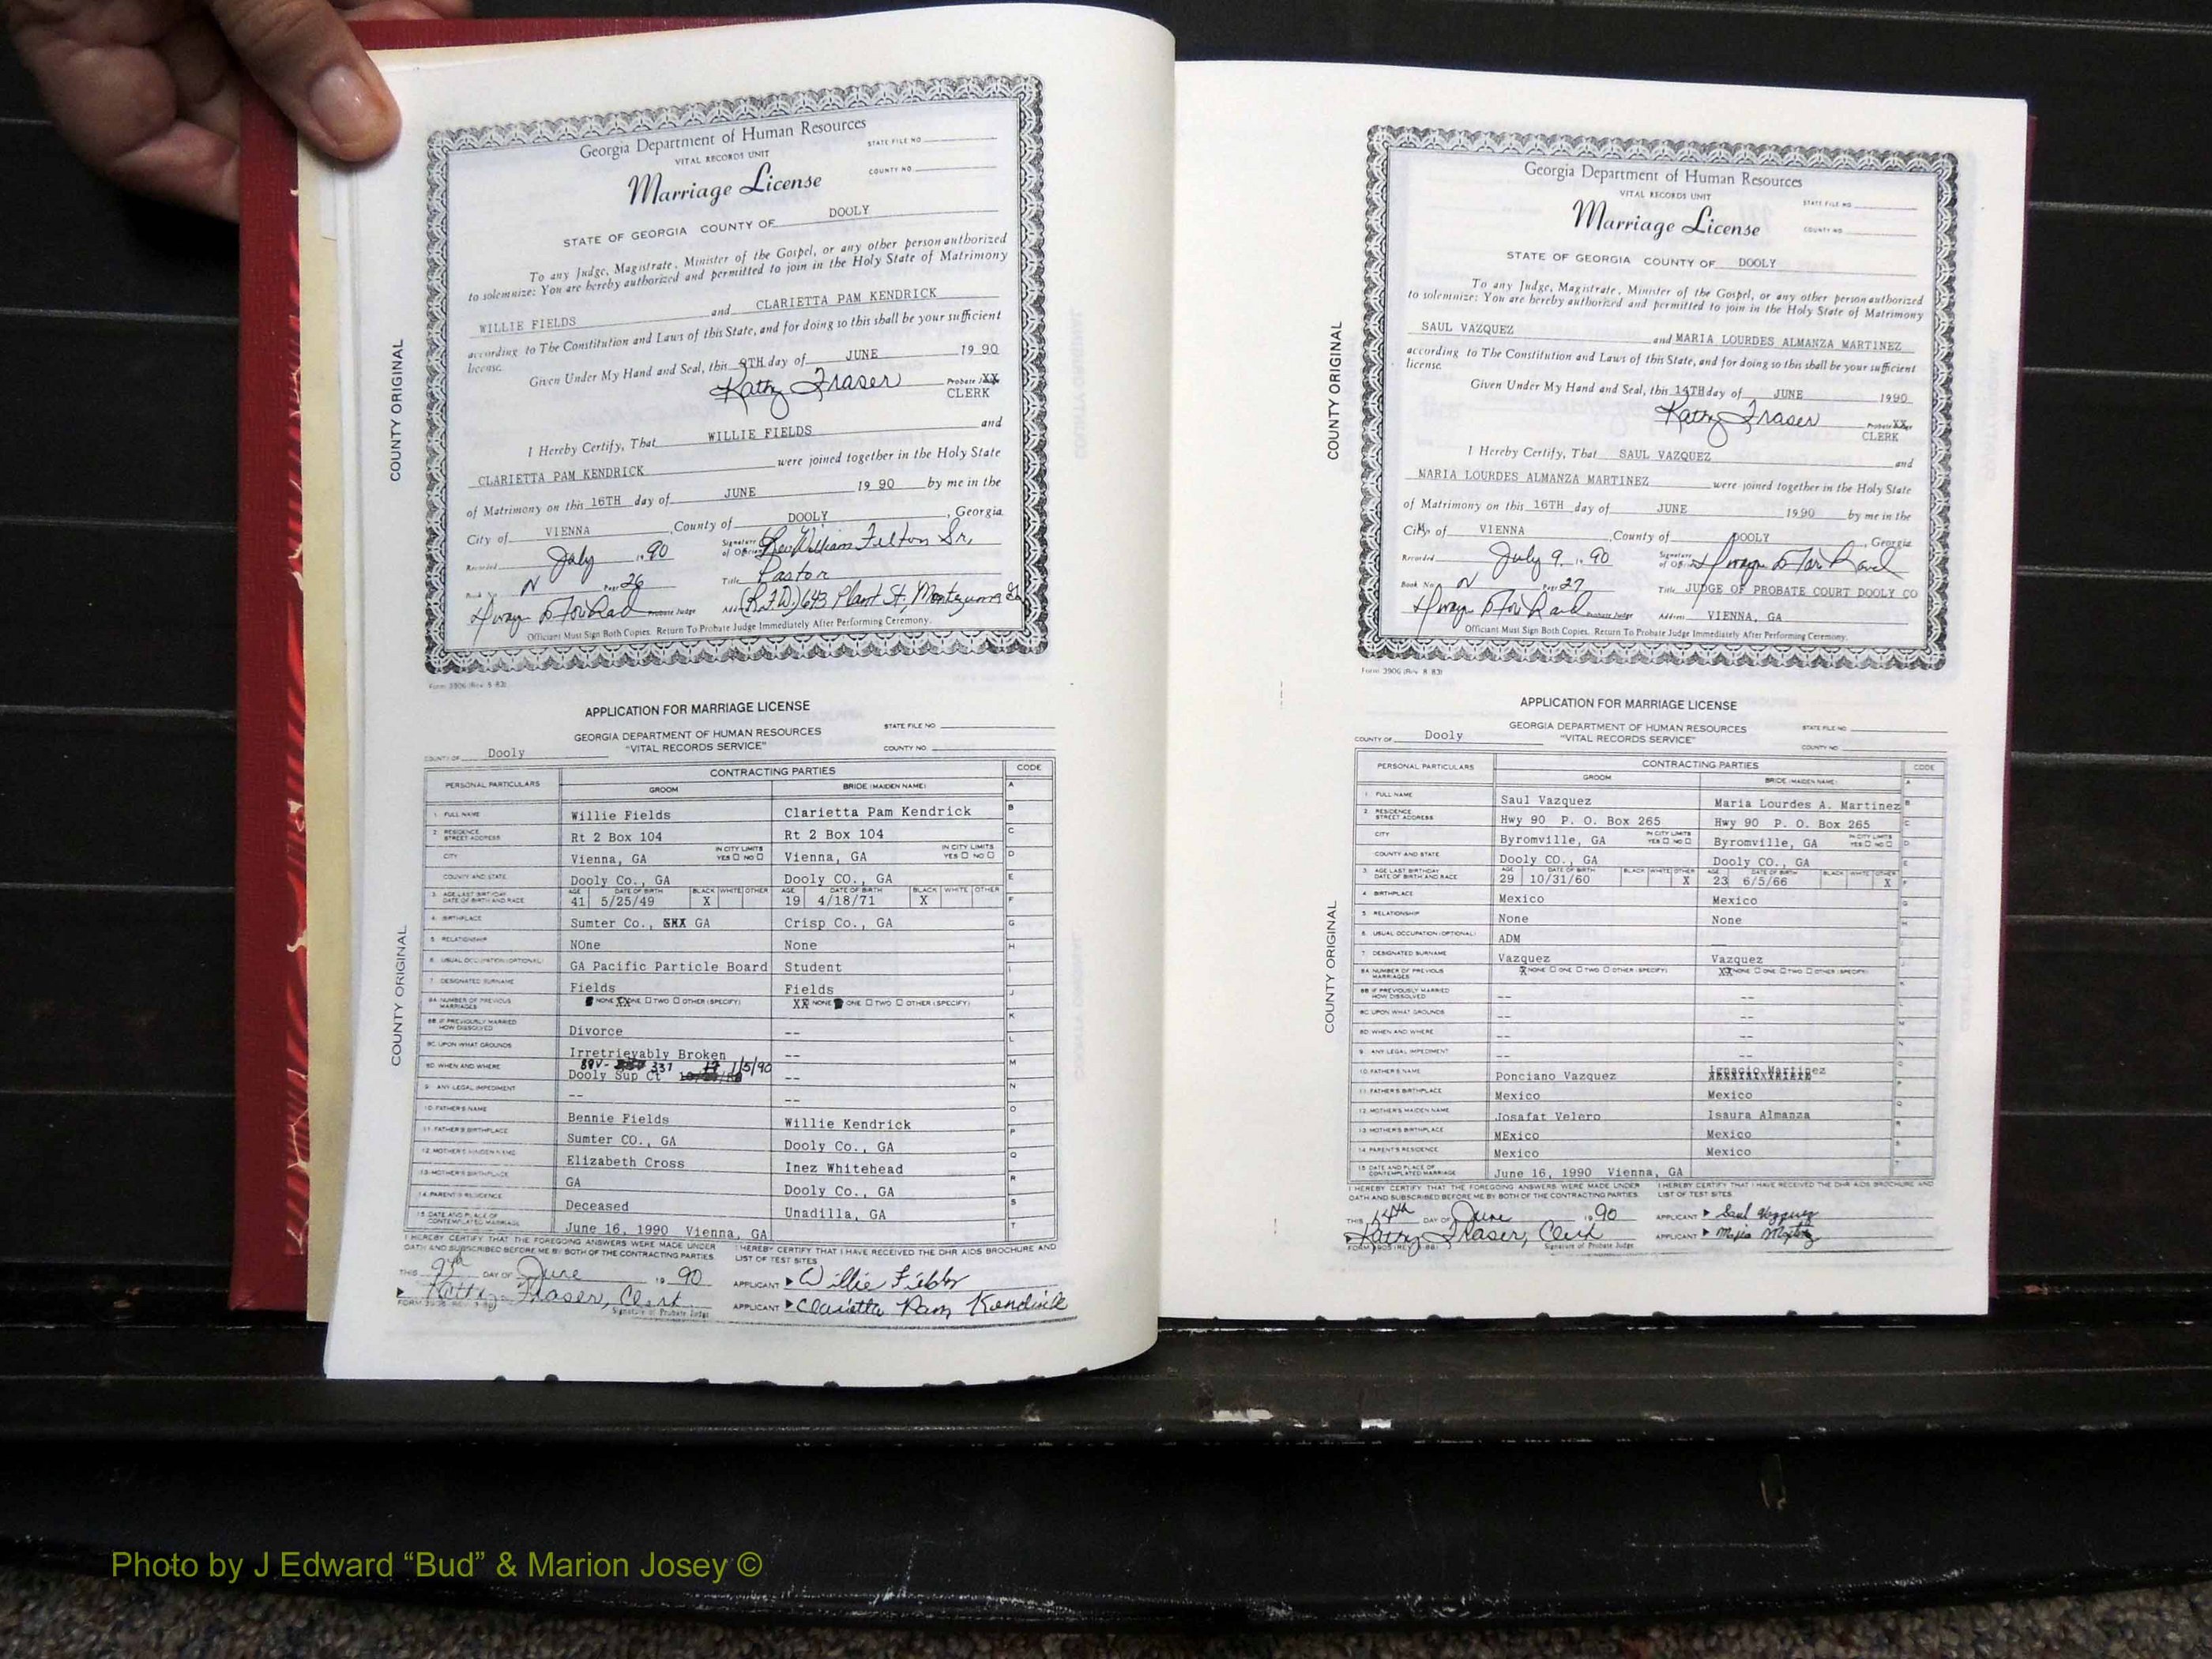 Georgia Department of Human Resources
VITAL RECORDS UNIT
STATE FILE NO
COUNTY NO
Marriage License
STATE OF GEORGIA COUNTY OF DOOLY
To any Judge, Magistrate, Minister of the Gospel, or any other person authorized
to solemnize: You are hereby authorized and permitted to join in the Holy State of Matrimony
WILLIE FIELDS and CLARIETTA PAM KENDRICK
according to The Constitution and Laws of this State, and for doing so this shall be your sufficient
license.
Given Under My Hand and Seal, this 9TH day of JUNE 19 90
Kathy Fraser
Probate XX
CLERK
I Hereby Certify, That WILLIE FIELDS and
CLARIETTA PAM KENDRICK were joined together in the Holy State
of Matrimony on this 16TH day of JUNE 19 90 by me in the
City of VIENNA, County of DOOLY, Georgia.
Recorded July 19 90 Signature of Officiant Rev William Felton Sr.
Book No N Page 26 Title Pastor
Probate Judge Address (R.F.D.) 643 Plant St, Montezuma Ga
Officiant Must Sign Both Copies. Return To Probate Judge Immediately After Performing Ceremony.
Form 3906 (Rev. 8-83)
COUNTY ORIGINAL
APPLICATION FOR MARRIAGE LICENSE
GEORGIA DEPARTMENT OF HUMAN RESOURCES
"VITAL RECORDS SERVICE"
STATE FILE NO
COUNTY NO.
COUNTY OF Dooly
PERSONAL PARTICULARS CONTRACTING PARTIES CODE
GROOM BRIDE (MAIDEN NAME) A
1 FULL NAME Willie Fields Clarietta Pam Kendrick B
2 RESIDENCE STREET ADDRESS Rt 2 Box 104 Rt 2 Box 104 C
CITY Vienna, GA IN CITY LIMITS YES NO Vienna, GA IN CITY LIMITS YES NO D
COUNTY AND STATE Dooly Co., GA Dooly CO., GA E
3 AGE LAST BIRTHDAY DATE OF BIRTH AND RACE AGE DATE OF BIRTH BLACK WHITE OTHER AGE DATE OF BIRTH BLACK WHITE OTHER
41 5/25/49 X 19 4/18/71 X F
4 BIRTHPLACE Sumter Co., GA Crisp Co., GA G
5 RELATIONSHIP NOne None H
6 USUAL OCCUPATION (OPTIONAL) GA Pacific Particle Board Student I
7 DESIGNATED SURNAME Fields Fields J
8A NUMBER OF PREVIOUS MARRIAGES NONE XX ONE TWO OTHER (SPECIFY) XX NONE ONE TWO OTHER (SPECIFY)
8B IF PREVIOUSLY MARRIED HOW DISSOLVED Divorce -- K
8C UPON WHAT GROUNDS Irretrievably Broken -- L
8D WHEN AND WHERE 89V- 337 1/5/90 Dooly Sup Ct -- M
9 ANY LEGAL IMPEDIMENT -- -- N
10 FATHER'S NAME Bennie Fields Willie Kendrick O
11 FATHER'S BIRTHPLACE Sumter CO., GA Dooly Co., GA P
12 MOTHER'S MAIDEN NAME Elizabeth Cross Inez Whitehead Q
13 MOTHER'S BIRTHPLACE GA Dooly Co., GA R
14 PARENT'S RESIDENCE Deceased Unadilla, GA S
15 DATE AND PLACE OF CONTEMPLATED MARRIAGE June 16, 1990 Vienna, GA T
I HEREBY CERTIFY THAT THE FOREGOING ANSWERS WERE MADE UNDER
OATH AND SUBSCRIBED BEFORE ME BY BOTH OF THE CONTRACTING PARTIES.
I HEREBY CERTIFY THAT I HAVE RECEIVED THE DHR AIDS BROCHURE AND
LIST OF TEST SITES
THIS 9th DAY OF June 19 90 APPLICANT Willie Fields
Kathy Fraser, Clerk APPLICANT Clarietta Pam Kendrick
Signature of Probate Judge
COUNTY ORIGINAL
Georgia Department of Human Resources
VITAL RECORDS UNIT
STATE FILE NO
COUNTY NO
Marriage License
STATE OF GEORGIA COUNTY OF DOOLY
To any Judge, Magistrate, Minister of the Gospel, or any other person authorized
to solemnize: You are hereby authorized and permitted to join in the Holy State of Matrimony
SAUL VAZQUEZ and MARIA LOURDES ALMANZA MARTINEZ
according to The Constitution and Laws of this State, and for doing so this shall be your sufficient
license.
Given Under My Hand and Seal, this 14TH day of JUNE 1990
Kathy Fraser
Probate XX
CLERK
I Hereby Certify, That SAUL VAZQUEZ and
MARIA LOURDES ALMANZA MARTINEZ were joined together in the Holy State
of Matrimony on this 16TH day of JUNE 1990 by me in the
City of VIENNA, County of DOOLY, Georgia
Recorded July 9 19 90
Book No N Page 27 Title JUDGE OF PROBATE COURT DOOLY CO
Probate Judge Address VIENNA, GA
Officiant Must Sign Both Copies. Return To Probate Judge Immediately After Performing Ceremony.
Form 3906 (Rev. 8-83)
COUNTY ORIGINAL
APPLICATION FOR MARRIAGE LICENSE
GEORGIA DEPARTMENT OF HUMAN RESOURCES
"VITAL RECORDS SERVICE"
STATE FILE NO
COUNTY NO
COUNTY OF Dooly
PERSONAL PARTICULARS CONTRACTING PARTIES CODE
GROOM BRIDE (MAIDEN NAME) A
1 FULL NAME Saul Vazquez Maria Lourdes A. Martinez B
2 RESIDENCE STREET ADDRESS Hwy 90 P. O. Box 265 Hwy 90 P. O. Box 265 C
CITY Byromville, GA IN CITY LIMITS YES NO Byromville, GA IN CITY LIMITS YES NO D
COUNTY AND STATE Dooly CO., GA Dooly CO., GA E
3 AGE LAST BIRTHDAY DATE OF BIRTH AND RACE AGE DATE OF BIRTH BLACK WHITE OTHER AGE DATE OF BIRTH BLACK WHITE OTHER
29 10/31/60 X 23 6/5/66 X F
4 BIRTHPLACE Mexico Mexico G
5 RELATIONSHIP None None H
6 USUAL OCCUPATION (OPTIONAL) ADM
7 DESIGNATED SURNAME Vazquez Vazquez
8A NUMBER OF PREVIOUS MARRIAGES X NONE ONE TWO OTHER (SPECIFY) XX NONE ONE TWO OTHER (SPECIFY)
8B IF PREVIOUSLY MARRIED HOW DISSOLVED -- --
8C UPON WHAT GROUNDS -- --
8D WHEN AND WHERE -- --
9 ANY LEGAL IMPEDIMENT -- --
10 FATHER'S NAME Ponciano Vazquez Ignacio Martinez
11 FATHER'S BIRTHPLACE Mexico Mexico
12 MOTHER'S MAIDEN NAME Josafat Velero Isaura Almanza
13 MOTHER'S BIRTHPLACE MExico Mexico
14 PARENT'S RESIDENCE Mexico Mexico
15 DATE AND PLACE OF CONTEMPLATED MARRIAGE June 16, 1990 Vienna, GA
I HEREBY CERTIFY THAT THE FOREGOING ANSWERS WERE MADE UNDER
OATH AND SUBSCRIBED BEFORE ME BY BOTH OF THE CONTRACTING PARTIES.
I HEREBY CERTIFY THAT I HAVE RECEIVED THE DHR AIDS BROCHURE AND
LIST OF TEST SITES
THIS 14th DAY OF June 19 90 APPLICANT Saul Vazquez
Kathy Fraser, Clerk APPLICANT
Signature of Probate Judge
COUNTY ORIGINAL
Photo by J Edward “Bud” & Marion Josey ©